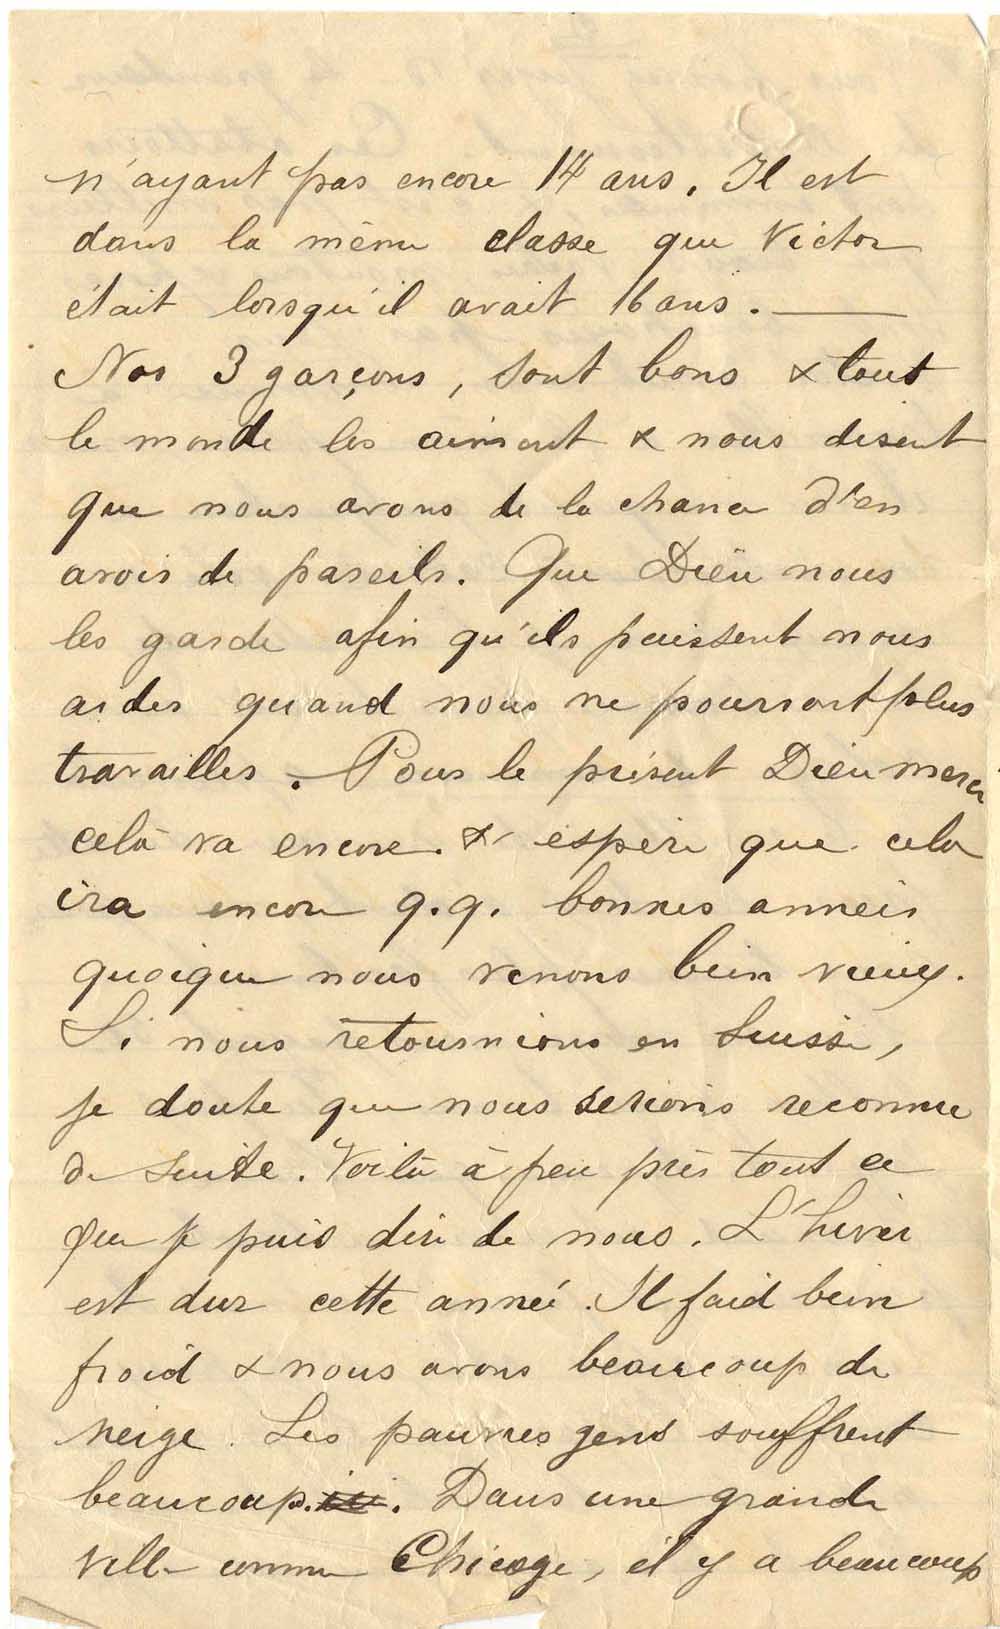 n'ayant pas encore 14 ans. Il est
dans la même classe que Victor
était lorsqu'il avait 16 ans. —
Nos 3 garçons, sont bons & tout
le monde les aiment & nous disent
que nous avons de la chance d'en
avoir de pareils. Que Dieu nous
les garde afin qu'ils puissent nous
aider quand nous ne pourront plus
travailler. Pour le présent Dieu merci
celà va encore. & espère que cela
ira encore q.q. bonnes années
quoique nous venons bein vieux.
Si nous retournions en Suisse,
je doute que nous serions reconnu
de suite. Voilà à peu près tout ce
que je puis dire de nous. L'hiver
est dur cette année. Il faid bein
froid & nous avons beaucoup de
neige. Les pauvres gens souffrent
beaucoup. Dans une grande
ville comme Chicago, il y a beaucoup